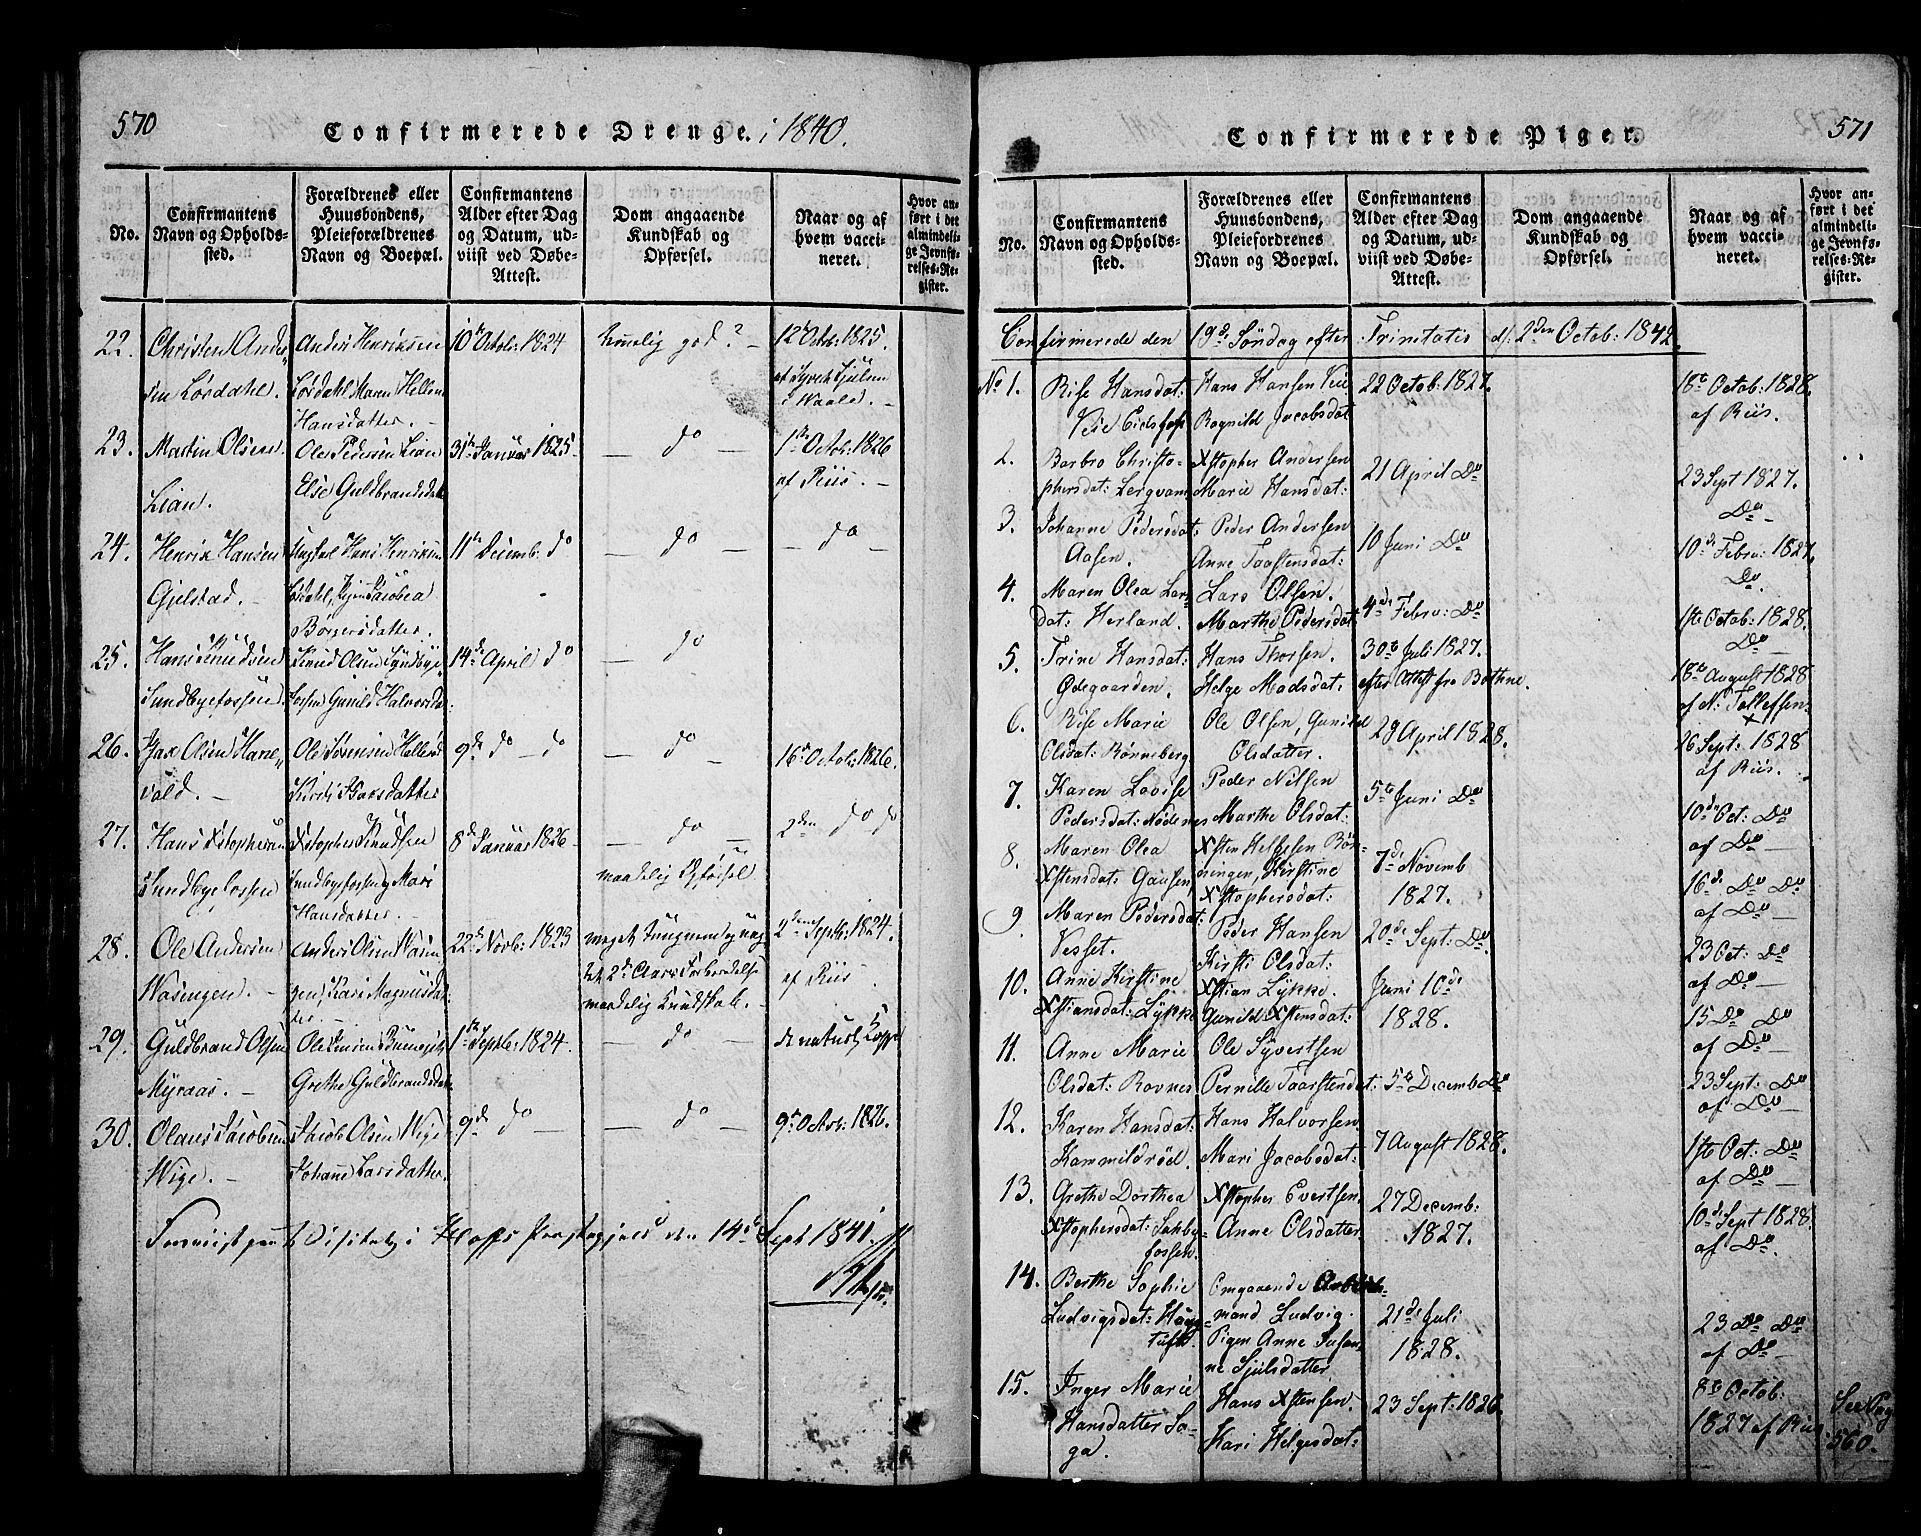 570
Confirmerede Drenge. i 1840.
No.
Confirmantens
Navn og Opholds-
sted.
Forældrenes eller
Huusbondens,
Pleieforældrenes
Navn og Boepæl.
Confirmantens
Alder efter Dag
og Datum, ud-
viist ved Døbe-
Attest.
Dom angaaende
Kundskab og
Opførsel.
Naar og af
hvem vacci-
neret.
Hvor an-
ført i det
almindeli-
ge Jevnfø-
relses-Re-
gister.
22. Christen Ander-
sen Lørdahl.
Anders Henriksen
Lørdahl Maren Hellene
Hansdatter.
10de Octob: 1824
temelig god?
12 Octob: 1825.
af
i Waale.
23. Martin Olsen
Lian.
Ole Pedersen Lian
Else Guldbrandsdat
31te Januar 1825
do
1te Octob: 1826
af Riis.
24. Henrik Hansen
Gjelstad.
Hans Henriksen
Lørdahl, Pigen Jacobea
Børgersdatter.
11te Decemb: do
do
do
25. Hans Knudsen
Sundbyefossen
Knud Olsen Sundbye
fossen Gunild Halvorsd.
14de April do
do
26. Isax Olsen Hane-
vold.
Ole Hellerud
Kirsti Isaksdatter
9de do do
do
16de Octob: 1826.
27. Hans Xstophersen
Sundbyefossen
Xstopher Knudsen
Sundbyefossen, Mari
Hansdatter.
8de Januar 1826
do
maadelig Opførsel
2den do do
28. Ole Andersen
Wasengen.
Anders Olsen Wasen
gen, Kari Magnusdat
ter.
22de Novb: 1823
meget
2de Aars Forberedelse
maadelig Kundskab.
2den Septb: 1824.
af Riis
29. Guldbrand Olsen
Myraas.
Ole Jensen
Grethe Guldbrandsdat
1te Septb: 1824.
do
de naturl: Kopper
30. Olaus Jacobsen
Wige.
Jacob Olsen Wige
Johane Larsdatter.
9de do
do
9de Octob: 1826.
Foreviist paa Visitats i Hoffs Præstegjeld den 14de Sept 1841.
571
Confirmerede Piger.
No.
Confirmantens
Navn og Opholds-
sted.
Forældrenes eller
Huusbondens,
Pleiefordrenes
Navn og Boepæl.
Confirmantens
Alder efter Dag
og Datum, ud-
viist ved Døbe-
Attest.
Dom angaaende
Kundskab og
Opførsel.
Naar og af
hvem vacci-
neret.
Hvor an-
ført i det
almindeli-
ge Jevnfø-
relses-Re-
gister.
Confirmerede den 19de Søndag efter Trinitatis d: 2den Octob: 1842.
No 1. Rise Hansdat:
Veie Eidsfos
Hans Hansen Veie
Ragnild Jacobsdat
22 Octob: 1827.
18de Octob: 1828.
af Riis.
2. Barbro Christo-
phersdat: Lergvam
Xstopher Andersen
Marie Hansdat:
21 April Do
23 Sept 1827.
Do
3. Johanne Pedersdat:
Aasen.
Peder Andersen
Anne Taastensdat:
10 Juni Do
10de Febru: 1827.
Do.
4. Maren Olea Lars
dat: Herland.
Lars Olsen.
Marthe Pedersdat:
4de Febru: Do
1ste Octob: 1828.
Do
5. Trine Hansdat:
Ødegaarden.
Hans Thorsen.
Helge Madsdat:
30te Juli 1827.
efter Attest fra Bothne.
18de August 1828
af N: Tollefsen.
6. Rise Marie
Olsdat: Rønneberg
Ole Olsen, Gunild
Olsdatter.
29 April 1828.
26 Sept: 1828
af Riis.
7. Karen Lovise
Pedersdat: Nødenes
Peder Nilsen
Marthe Olsdat:
5te Juni Do
10de Oct: Do
af Do
8. Maren Olea
Xstensdat: Gausen,
Xsten Helgesen Røn-
ningen, Kirstine
Xstophersdat:
7de Novemb
1827.
16de Do Do
af Do
9. Maren Pedersdat:
Vesset.
Peder Hansen
Kirsti Olsdat:
20de Sept: Do
23 Oct: Do
af Do
10. Anne Kirstine
Xstiansdat: Lykke
Xstian Lykke.
Gunild Xstensdat:
Juni 10de
1828.
15 Do Do
af Do
11. Anne Marie
Olsdat: Rovnes
Ole Syvertsen
Pernille Taarstendat:
5te Decemb Do
23 Sept: Do
af Do
12. Karen Hansdat:
Kammildrød.
Hans Halvorsen
Mari Jacobsdat:
7 August 1828.
1ste Oct: Do
af Do
13. Grethe Dorthea
Xstophersdat: Sundby
fossen.
Xstopher Evertsen.
Anne Olsdatter.
27 Decemb:
1827.
10de Sept 1828.
af Do.
14. Berthe Sophie
Ludvigsdat:
Omgaaende Arbeids-
mand Ludvig.
Pigen Anne Susan-
ne Sjulsdatter
21de Juli
1828.
23 Do Do
af Do
15. Inger Marie
Hansdatter So-
ga.
Hans Xstensen.
Kari Helgesdat:
23 Sept: 1826.
8de Octob:
1827 af Riis.
See Pag
560.